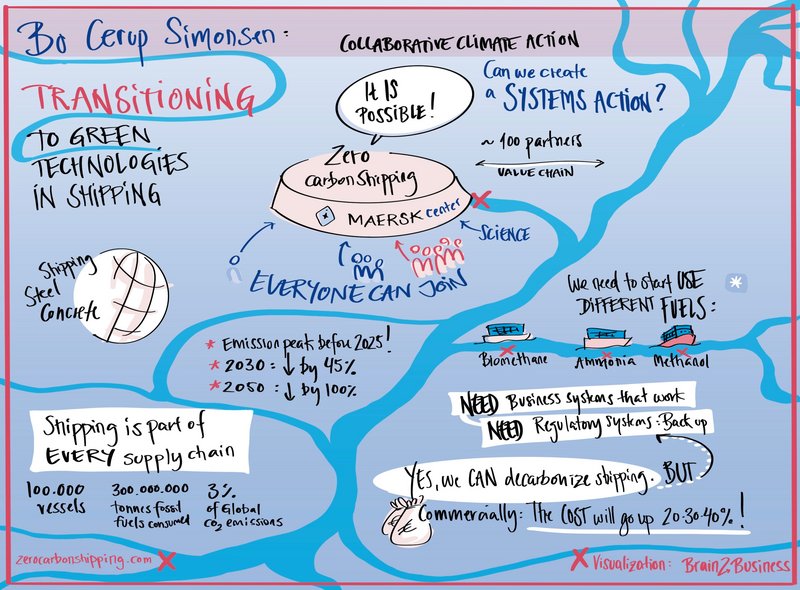 Bo Cerup Simonsen:
COLLABORATIVE CLIMATE ACTION
TRANSITIONING
TO GREEN
TECHNOLOGIES
IN SHIPPING
IT IS
POSSIBLE!
Can we create
a SYSTEMS ACTION?
~ 100 partners
VALUE CHAIN
Zero
carbon Shipping
MAERSK center
SCIENCE
EVERYONE CAN JOIN
Shipping
Steel
Concrete
We need to start USE
DIFFERENT FUELS:
Biomethane
Ammonia
Methanol
* Emission peak before 2025!
* 2030: ↓ by 45%
* 2050: ↓ by 100%
NEED Business systems that work
NEED Regulatory systems: Back up
Shipping is part of
EVERY supply chain
100.000
vessels
300.000.000
tonnes fossil
fuels consumed
3%
of Global
CO2 emissions
YES, we CAN decarbonize shipping. BUT
Commercially: The COST will go up 20-30-40%!
zerocarbonshipping.com
Visualization: Brain2Business